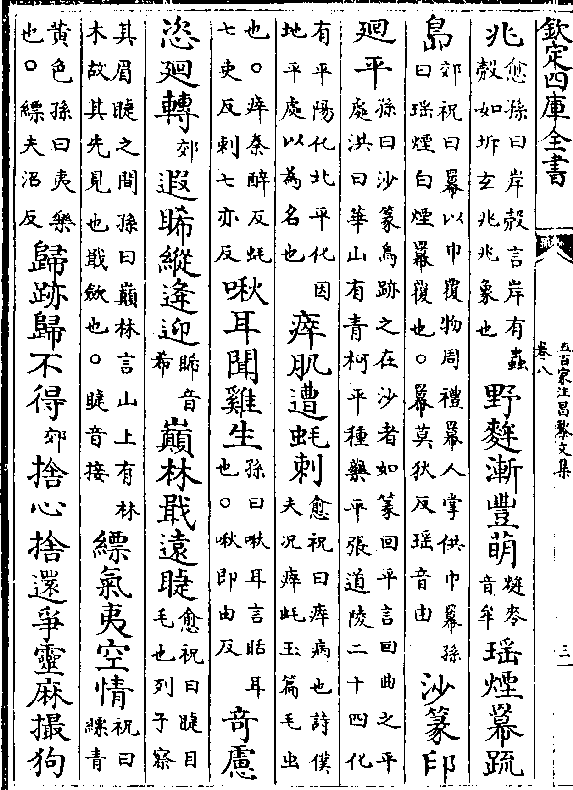 欽定四庫全書
五百家注昌黎文集
卷八
三一
兆愈孫曰岸殼言岸有蟲殼如坼玄兆兆象也野麰漸豐萌麰麥音牟瑶煙冪疏
島郊祝曰冪以巾覆物周禮冪人掌供巾冪孫曰瑶煙白煙冪覆也○冪莫狄反瑶音由沙篆印
廻平孫曰沙篆鳥跡之在沙者如篆回平言回曲之平處洪曰華山有青柯平種藥平張道陵二十四化
有平陽化北平化因地平處以為名也瘁肌遭蚝刺愈祝曰瘁病也詩僕夫况瘁蚝玉篇毛虫
也○瘁秦醉反蚝七吏反刺七亦反啾耳聞雞生孫曰啾耳言聒耳也○啾即由反奇慮
恣廻轉郊遐睎縱逢迎睎音希巔林戢遠睫愈祝曰睫目毛也列子察
其眉睫之間孫曰巔林言山上有林木故其先見也戢斂也○睫音接縹氣夷空情祝曰縹青
黄色孫曰夷樂也○縹夫沼反歸跡歸不得郊捨心捨還爭靈麻撮狗